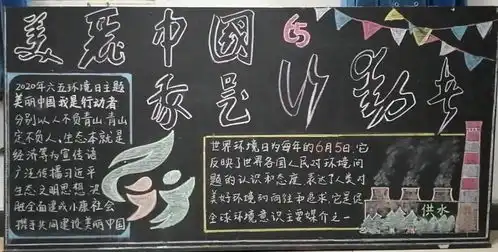 美丽中国
6.5
我是行动者
2020年六五环境日主题
美丽中国我是行动者
分别以人不负青山青山
定不负人、生态本就是
经济等为宣传语
广泛传播习近平
生态文明思想、决
胜全面建成小康社会
携手共同建设美丽中国
世界环境日为每年的6月5日,它
反映了世界各国人民对环境问
题的认识和态度,表达了人类对
美好环境的向往和追求,它是促
全球环境意识主要媒介之一
供水